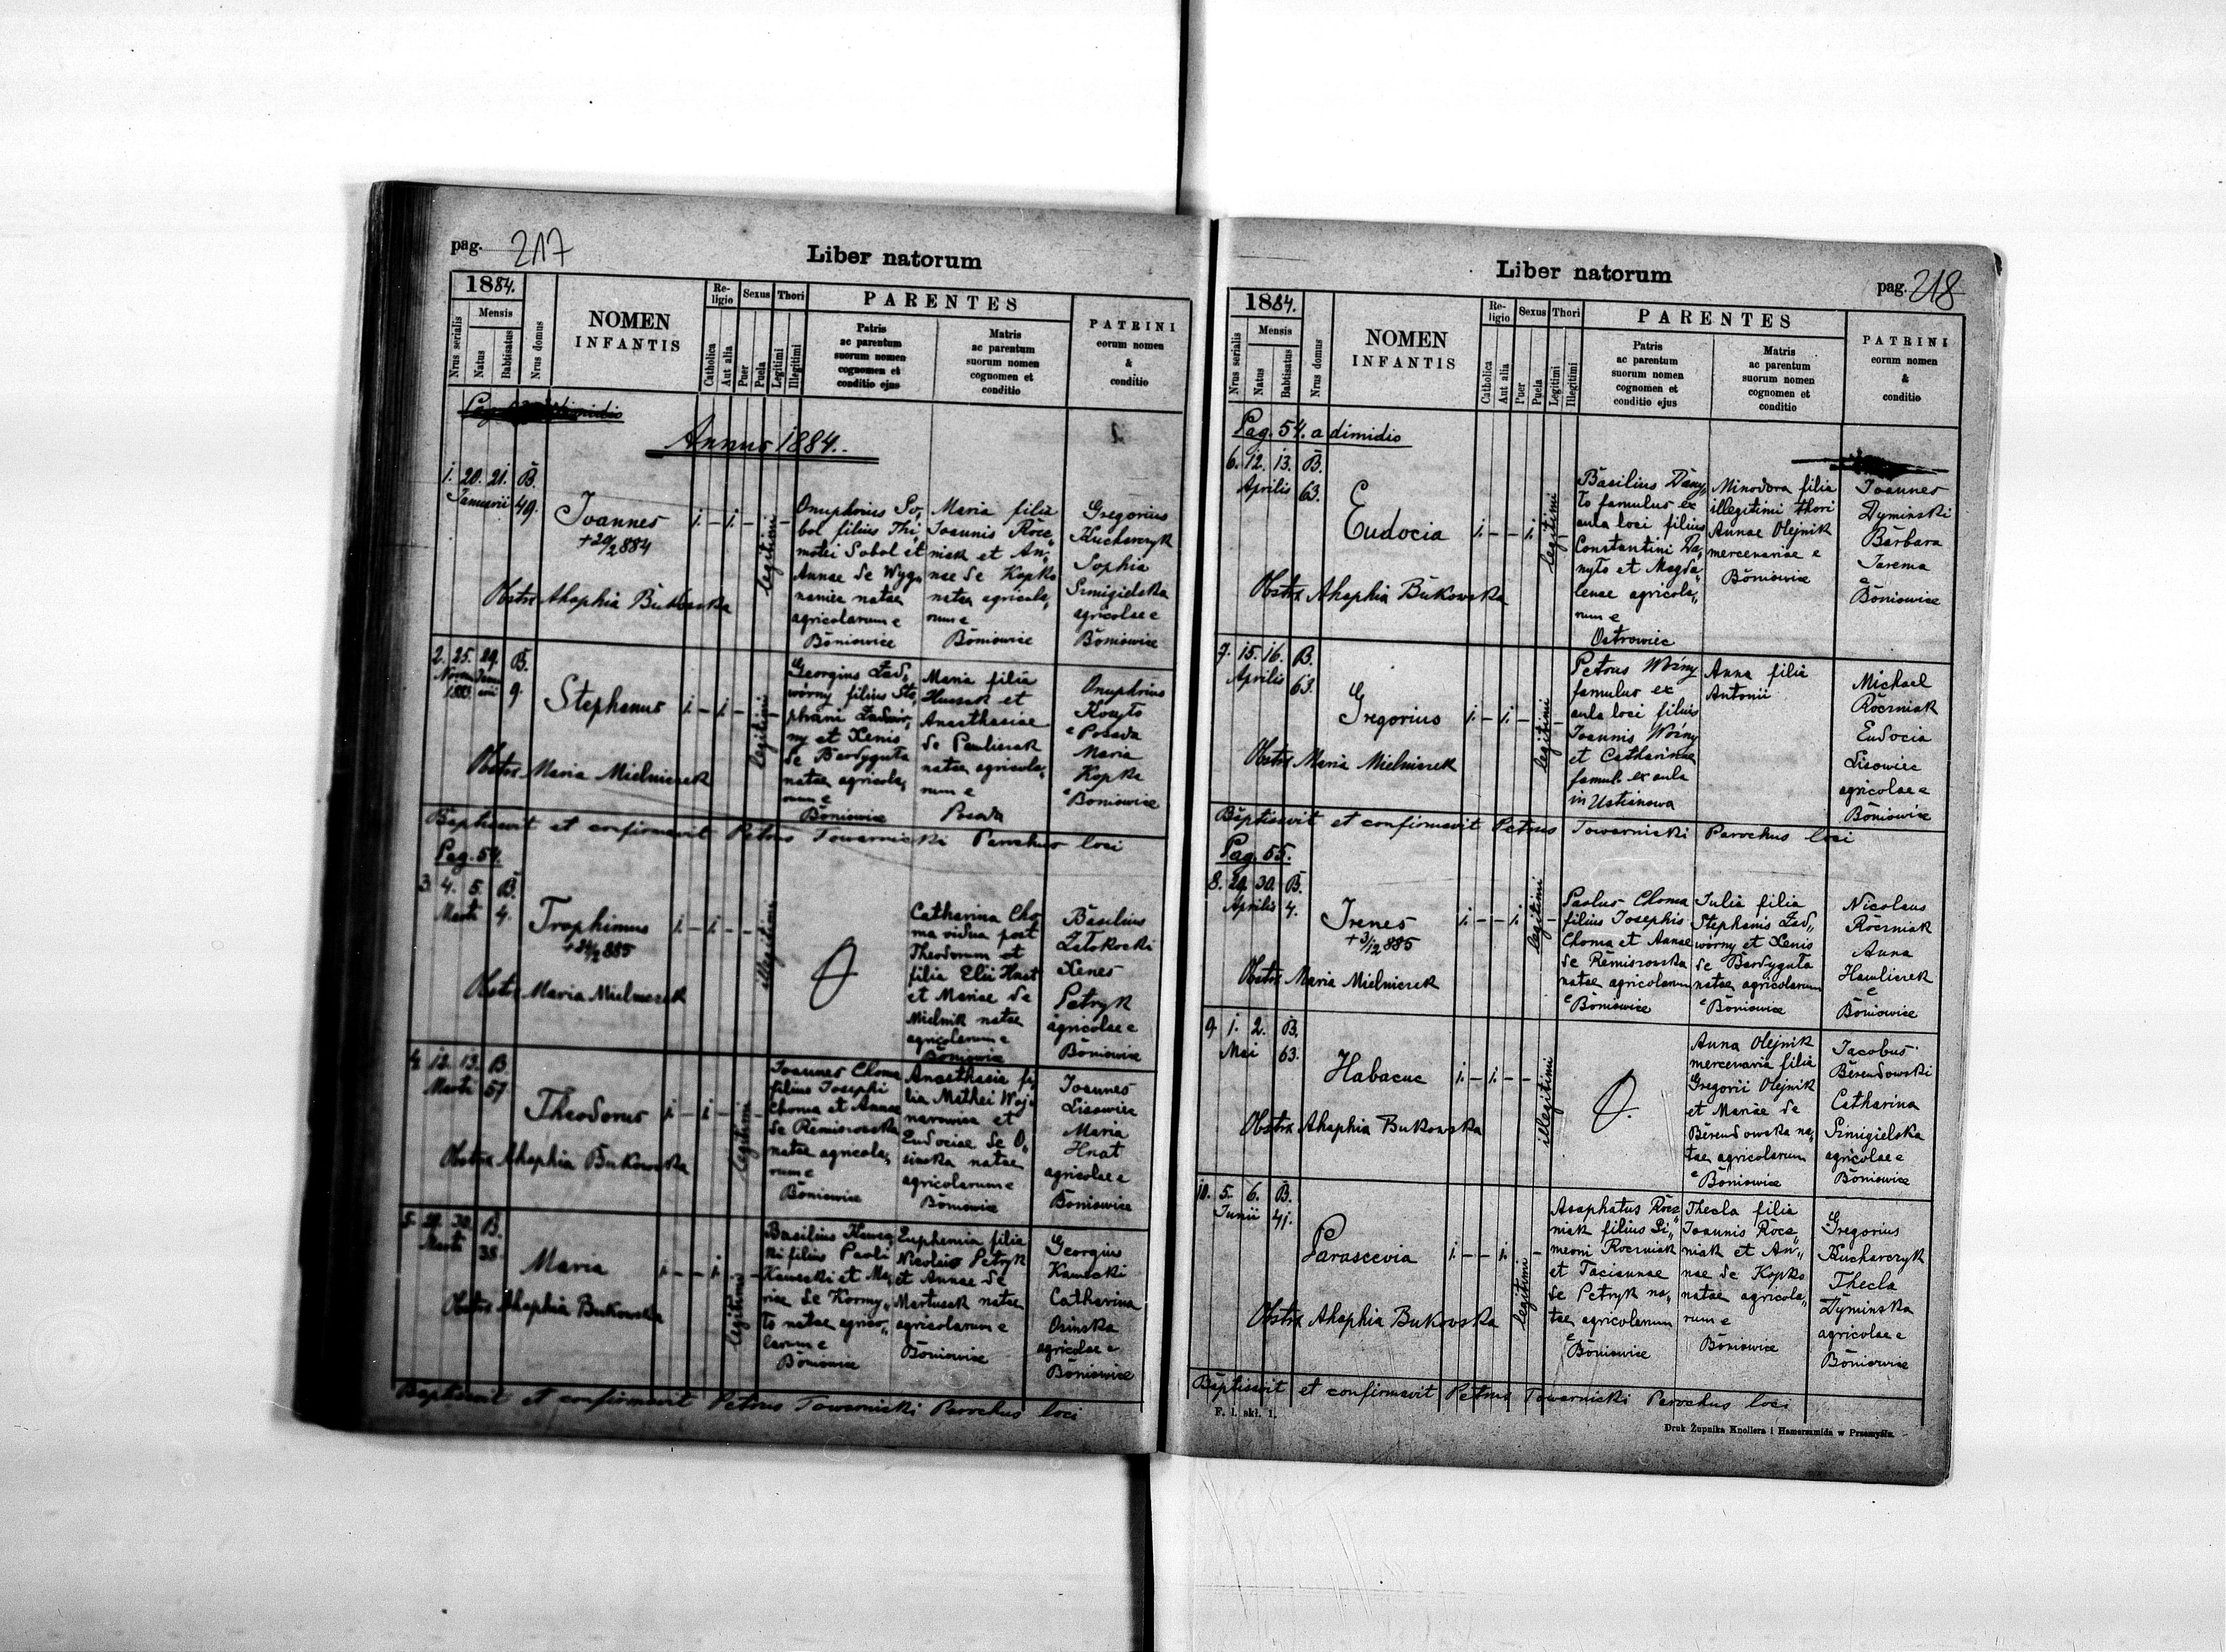 pag. 217
Liber natorum
1884.
Nrus serialis
Mensis
Natus
Babtisatus
Nrus domus
NOMEN
INFANTIS
Re-
ligio
Catholica
Aut alia
Sexus
Puer
Puela
Thori
Legitimi
Illegitimi
PARENTES
Patris
ac parentum
suorum nomen
cognomen et
conditio ejus
Matris
ac parentum
suorum nomen
cognomen et
conditio
PATRINI
eorum nomen
&
conditio
Annus 1884.
1. 20. 21. B.
Januarii 49.
Joannes
+20/2 884
1. – 1. – legitimi –
Onuphrius So„
bol filius Thi„
motei Sobol et
Annae de Wyg„
naniec natae
agricolarum e
Boniowice
Maria filia
Joannis Rocz„
niak et An„
nae de Kopko
natae agricola„
rum e
Boniowice
Gregorius
Kucharczyk
Sophia
Smigielska
agricolae e
Boniowice
Obstx Ahaphia Bukowska
2. 25. 29. B.
9.
Stephanus
1. – 1. – legitimi –
Georgius Zad„
worny filius Ste„
phani Zadwor„
ny et Xenis
de Bardyguła
natae agricola„
rum e
Boniowice
Maria filia
Hussak et
Anasthasiae
de Pauliczak
natae agricola„
rum e
Posada
Onuphrius
e Posada
Maria
Kopko
e Boniowice
Obstx Maria Mielniczek
Baptisavit et confirmavit Petrus Towarnicki Parochus loci
Pag. 54.
3. 4. 5. B.
Marti 4.
Trophimus
1. – 1. – – illegitimi
Catharina Cho
ma vidua post
Theodorum et
filia Elii Hnat
et Mariae de
Mielnik natae
agricolarum e
Boniowice
Basilius
Załokocki
Xenes
Petryk
agricolae e
Boniowice
Obstx Maria Mielniczek
4. 12. 13. B.
Marti 57.
Theodorus
1. – 1. – legitimi –
Joannes Choma
filius Josephi
Choma et Annae
de Remiszowska
natae agricola„
rum e
Boniowice
Anasthasia fi„
lia Mathei Woj„
narowicz et
Eudociae de O„
sinska natae
agricolarum e
Boniowice
Joannes
Lisowiec
Maria
Hnat
agricolae e
Boniowice
Obstx Ahaphia Bukowska
5. 29. 30. B.
Marti 38.
Maria
1. – – 1. legitimi –
Basilius Kawec„
ki filius Pauli
Kawecki et Ma„
riae de Kormy„
ło natae agrico„
larum e
Boniowice
Euphemia filia
Nicolais Petryk
et Annae de
Martuszak natae
agricolarum e
Boniowice
Georgius
Kawecki
Catharina
Osinska
agricolae e
Boniowice
Obstx Ahaphia Bukowska
Baptisavit et confirmavit Petrus Towarnicki Parochus loci
Liber natorum
pag. 218
1884.
Nrus serialis
Mensis
Natus
Babtisatus
Nrus domus
NOMEN
INFANTIS
Re-
ligio
Catholica
Aut alia
Sexus
Puer
Puela
Thori
Legitimi
Illegitimi
PARENTES
Patris
ac parentum
suorum nomen
cognomen et
conditio ejus
Matris
ac parentum
suorum nomen
cognomen et
conditio
PATRINI
eorum nomen
&
conditio
Pag. 54. a dimidio
6. 12. 13. B.
Aprilis 63.
Eudocia
1. – – 1. legitimi
Basilius Dany„
ło famulus ex
aula loci filius
Constantini Da„
nyło et Magda„
lenae agricola„
rum e
Ostrowiec
Minodora filia
illegitimi thori
Annae Olejnik
mercenariae e
Boniowice
Joannes
Dyminski
Barbara
Jarema
e
Boniowice
Obstx Ahaphia Bukowska
7. 15. 16. B.
Aprilis 63.
Gregorius
1. – 1. – legitimi –
Petrus Woźny
famulus ex
aula loci filius
Joannis Woźny
et Catharinae
famul. ex aula
in Ustianowa
Anna filia
Antonii
Michael
Roczniak
Eudocia
Lisowiec
agricolae e
Boniowice
Obstx Maria Mielniczek
Baptisavit et confirmavit Petrus Towarnicki Parochus loci
Pag. 55.
8. 29. 30. B.
Aprilis 4.
Irenes
+3/12 885
1. – – 1. legitimi –
Paulus Choma
filius Josephis
Choma et Annae
de Remiszowska
natae agricolarum
e Boniowice
Julia filia
Stephanis Zad„
worny et Xenis
de Bardyguła
natae agricolarum
e Boniowice
Nicolaus
Roczniak
Anna
Hawliczek
e
Boniowice
Obstx Maria Mielniczek
9. 1. 2. B.
Mai 63.
Habacuc
1. – 1. – – illegitimi
Anna Olejnik
mercenaria filia
Gregorii Olejnik
et Mariae de
Berendowska na„
tae agricolarum
e Boniowice
Jacobus
Berendowski
Catharina
Smigielska
agricolae e
Boniowice
Obstx Ahaphia Bukowska
10. 5. 6. B.
Junii 41.
Parascevia
1. – – 1. legitimi –
Asaphatus Rocz„
niak filius Si„
meoni Roczniak
et Tacianae
de Petryk na„
tae agricolarum
e Boniowice
Thecla filia
Joannis Rocz„
niak et An„
nae de Kopko
natae agricola„
rum e
Boniowice
Gregorius
Kucharczyk
Thecla
Dyminska
agricolae e
Boniowice
Obstx Ahaphia Bukowska
Baptisavit et confirmavit Petrus Towarnicki Parochus loci
F. l. skł. 1.
Druk Żupnika Knollera i Hamerszmida w Przemyślu.